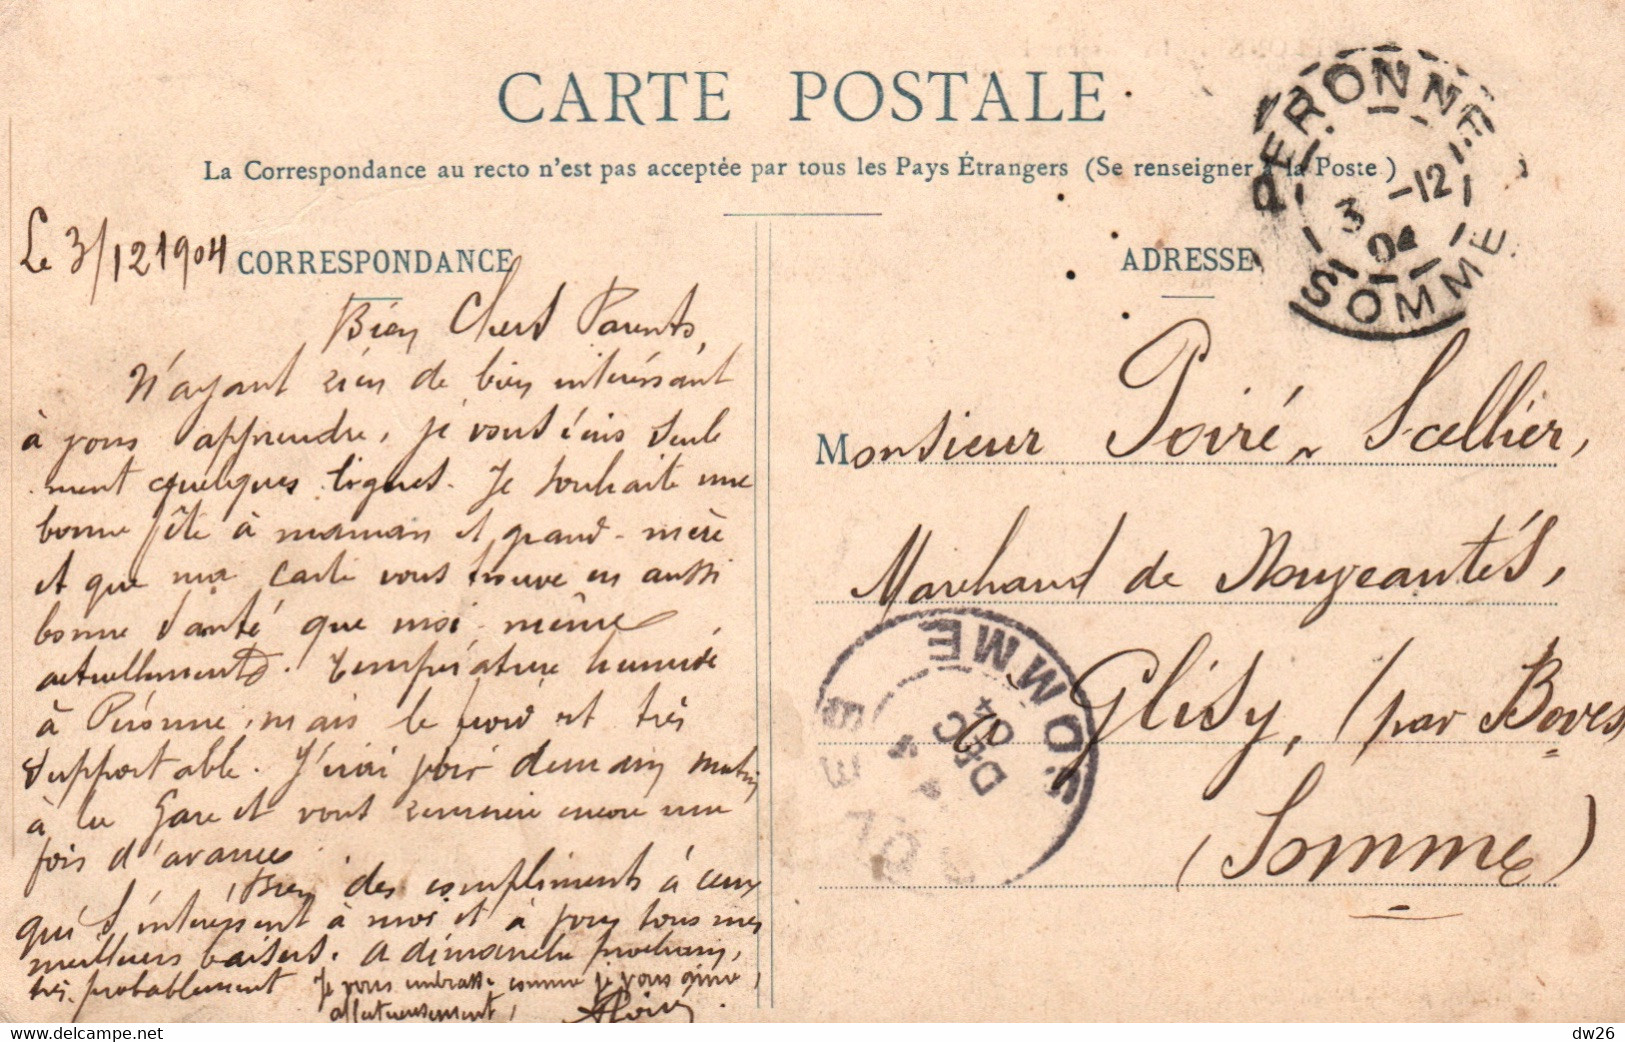 CARTE POSTALE
La Correspondance au recto n'est pas acceptée par tous les Pays Étrangers (Se renseigner à la Poste)
PERONNE
3 -12
04
SOMME
Le 3/12 1904
CORRESPONDANCE
Bien Chers Parents,
N'ayant rien de bien intéressant
à vous apprendre, je vous écris seule
ment quelques lignes. Je souhaite une
bonne fête à maman et grand-mère
et que ma carte vous trouve en aussi
bonne santé que moi-même
actuellement. Température humide
à Péronne, mais le froid est très
supportable. J'irai voir demain matin
à la Gare et vous remercie encore une
fois d'avance.
Bien des compliments à ceux
qui s'intéressent à moi et à vous tous mes
meilleurs baisers. A dimanche prochain,
très probablement
Je vous embrasse comme je vous aime,
affectueusement,
ADRESSE
Monsieur Poiré-Scellier,
Marchand de Nouveautés,
Glisy, (par Boves
(Somme)
SOMME
DEC
04
delcampe.net
dw26